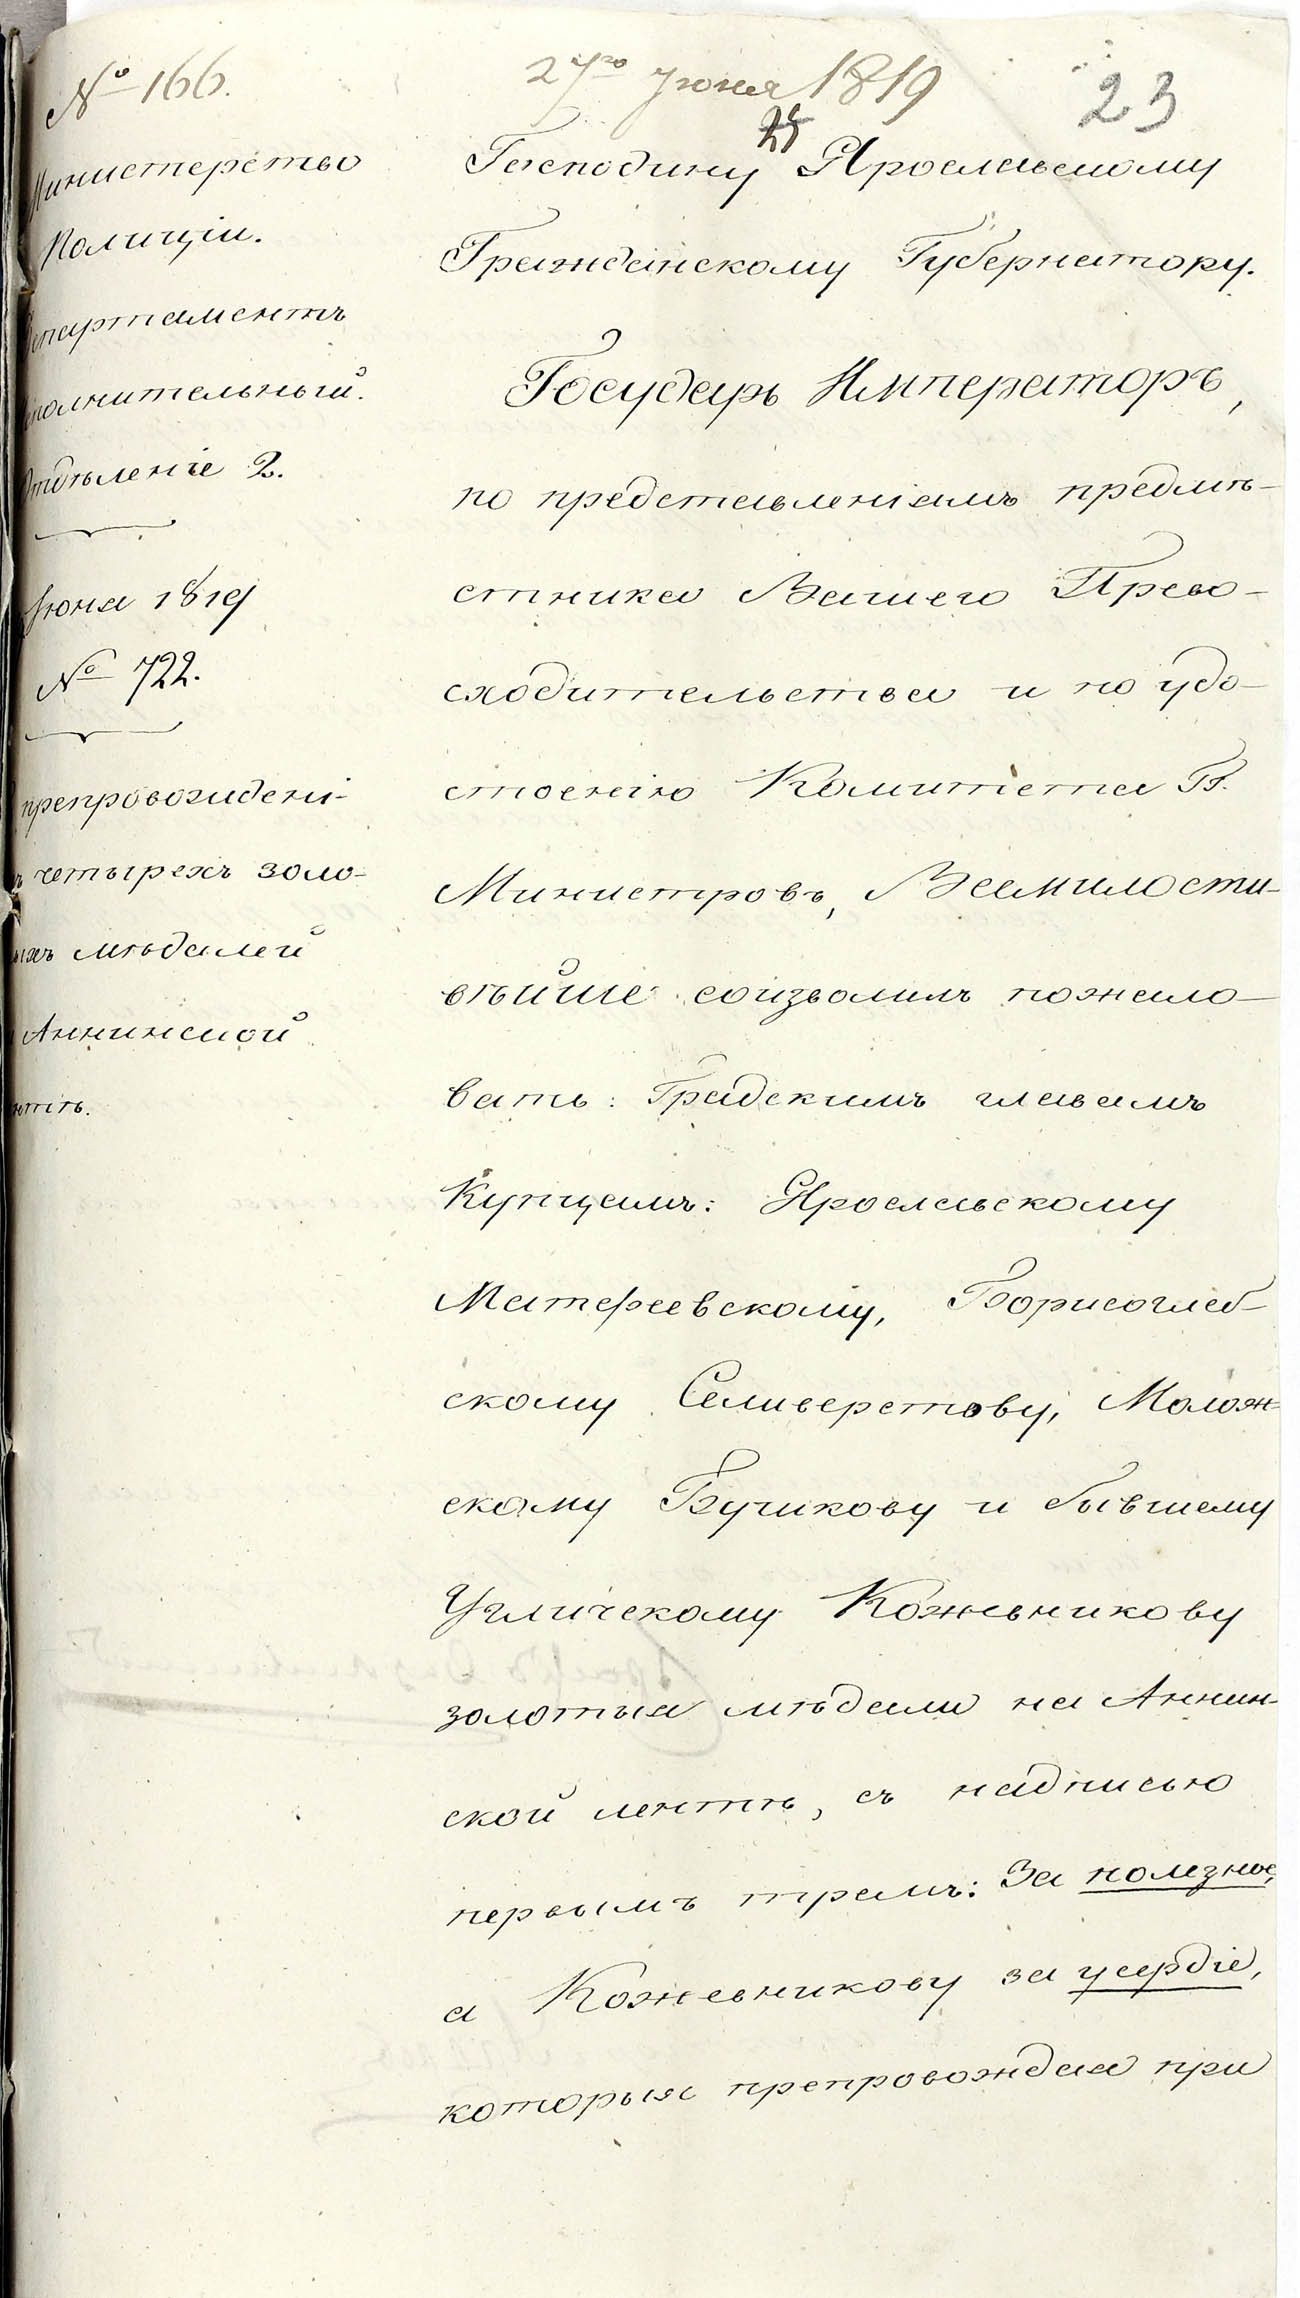 № 166.
27го Июня 1819
23
Министерство
Полиціи.
Департаментъ
Исполнительный.
Отдѣленіе 2.
Июня 1819
№ 722.
препровожденi-
четырехъ золо-
мѣдалей
Аннинской
Господину Ярославскому
Гражданскому Губернатору.
Государь Императоръ,
по представленіямъ предмѣ-
стника Вашего Прево-
сходительства и по удо-
стоенію Комитета Гг.
Министровъ, Всемилости-
вѣйше соизволилъ пожало-
вать: Градскимъ главамъ
Купцамъ: Ярославскому
Матфеевскому, Борисоглеб-
скому Селиверстову, Молож-
скому Бучикову и бывшему
Угличскому Кожевникову
золотыя мѣдали на Аннин-
ской лентѣ, съ надписью
первымъ тремъ: За полезное,
а Кожевникову за усердіе,
которыя препровождая при